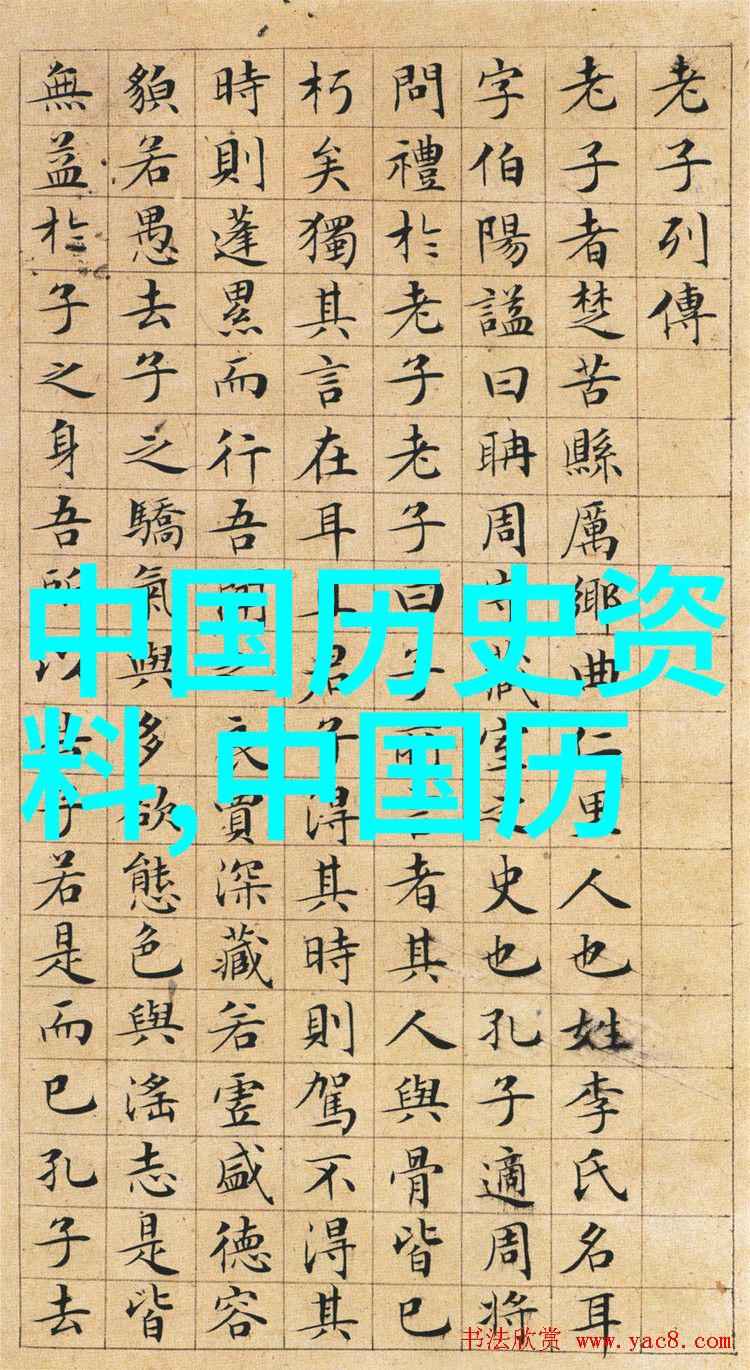 老子列傳
老子者楚苦縣厲鄉曲仁里人也姓李氏名耳
字伯陽謚曰聃周守藏室之史也孔子適周將
問禮於老子老子曰子所言者其人與骨皆已
朽矣獨其言在耳且君子得其時則駕不得其
時則蓬累而行吾聞之良賈深藏若虛盛德容
貌若愚去子之驕氣與多欲態色與淫志是皆
無益於子之身吾所以告子若是而已孔子去
中国历史资
料,中国历
书法欣赏 www.yac8.com